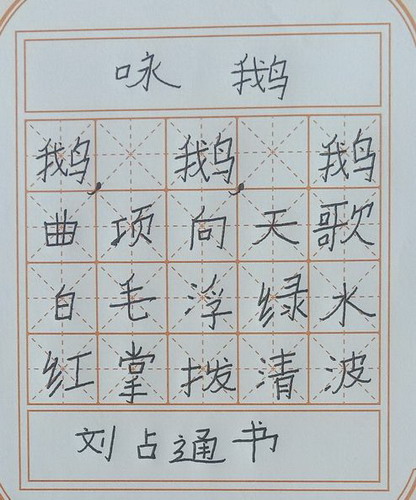 咏 鹅
鹅，鹅，鹅
曲项向天歌
白毛浮绿水
红掌拨清波
刘占通书